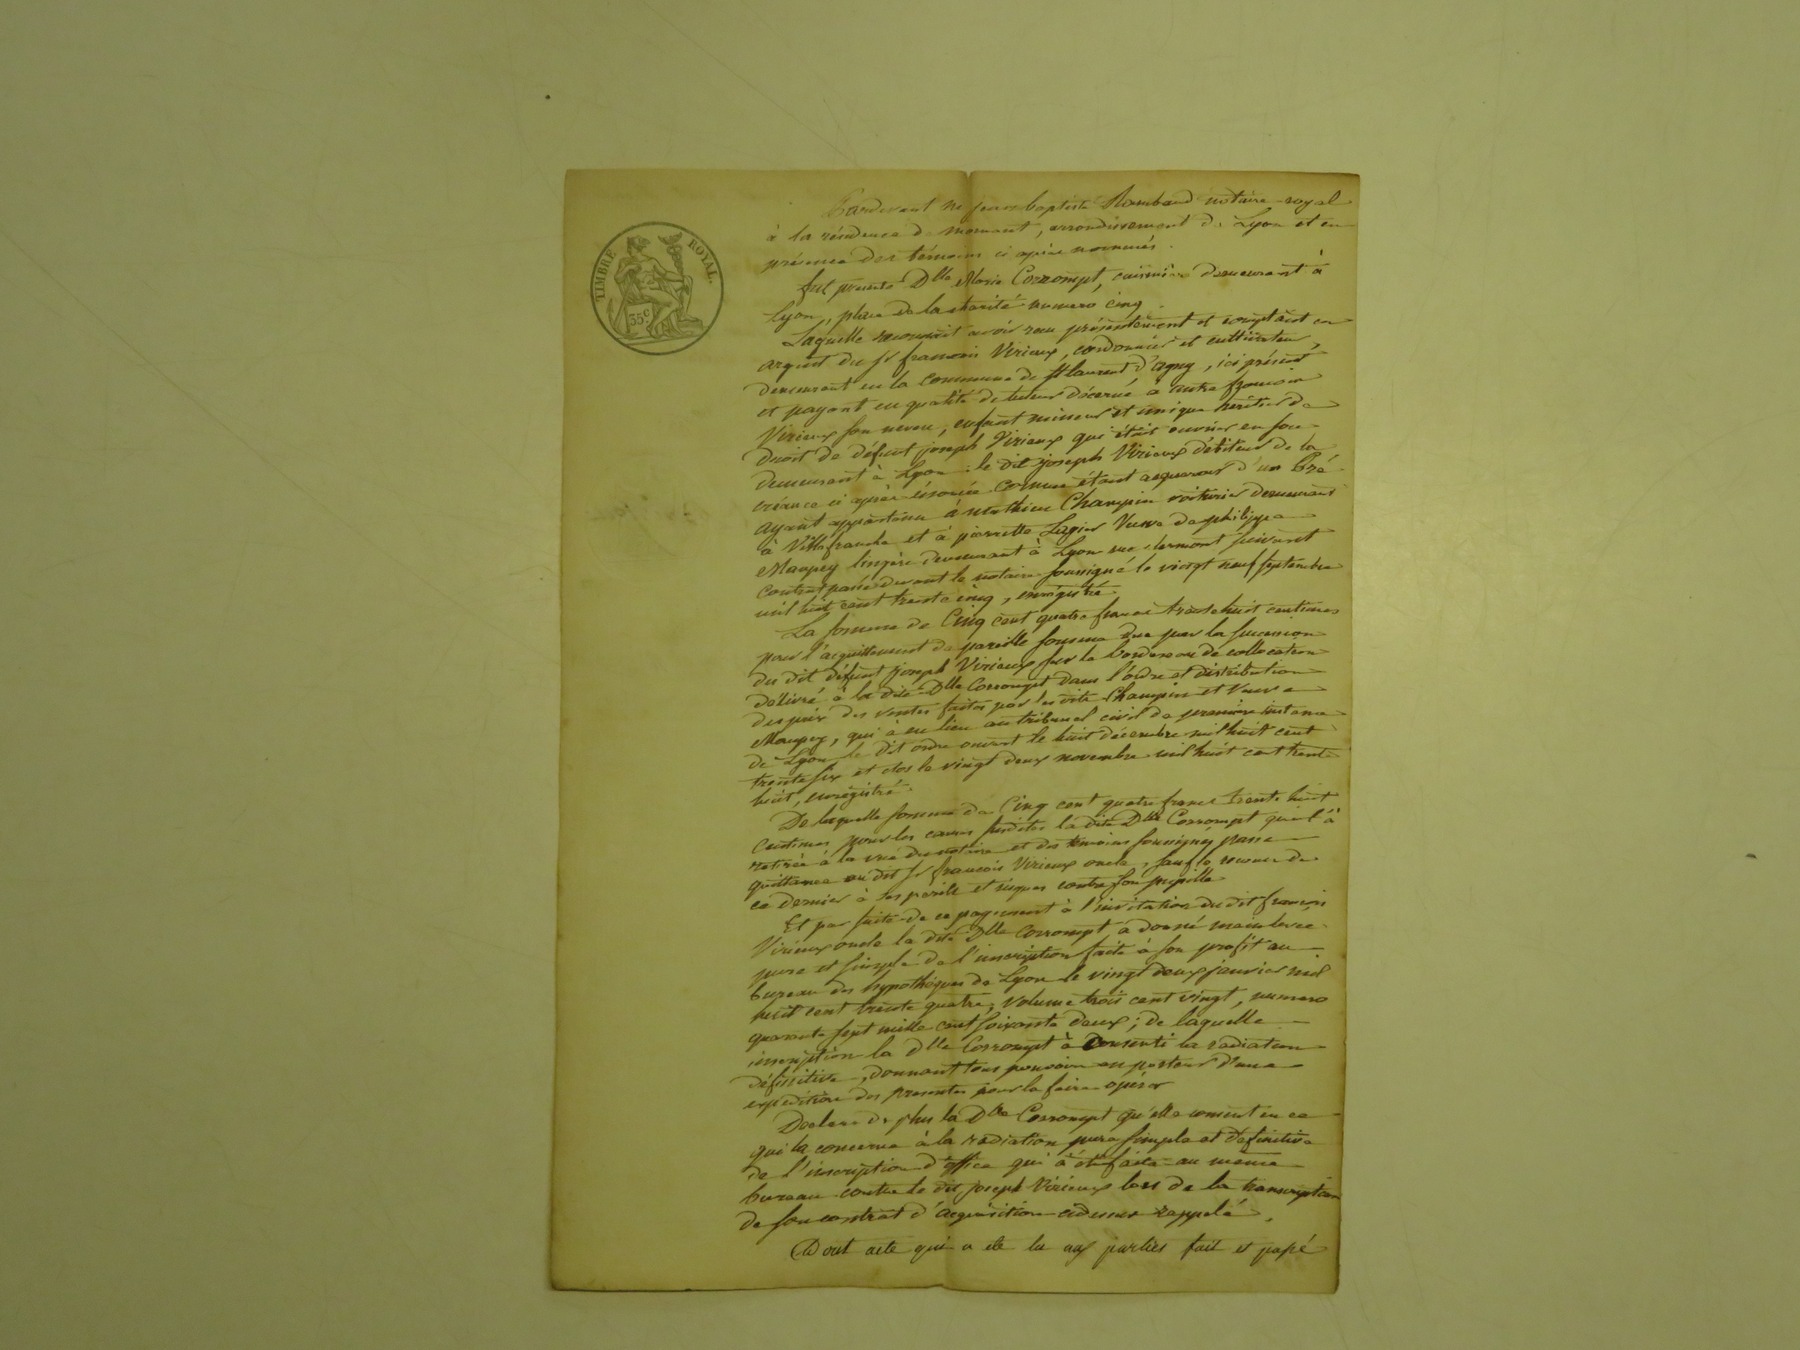 TIMBRE ROYAL
35c.
Pardevant Me jean baptiste Rambaud notaire royal
à la résidence de mornant, arrondissement de Lyon et en
présence des témoins ci après nommés.
fut présente Dlle Marie Corrompt, cuisinière demeurant à
Lyon, place de la charité numero cinq.
Laquelle reconnait avoir reçu présentement et comptant en
argent du Sr francois Virieux, cordonnier et cultivateur,
demeurant en la commune de St laurent d'agny, ici présent
et payant en qualité de tuteur décerné à autre francois
Virieux son neveu, enfant mineur et unique héritier de
droit de défunt joseph Virieux qui était ouvrier en soie
demeurant à Lyon. le dit joseph Virieux débiteur de la
créance ci après énoncée comme étant acquereur d'un Pré
ayant appartenu à mathieu Champin voiturier demeurant
à Villefranche et à pierrette Lagier Veuve de philippe
Maupey lingère demeurant à Lyon rue clermont suivant
contrat passé devant le notaire soussigné le vingt neuf septembre
mil huit cent trente cinq, enregistré.
La somme de Cinq cent quatre francs trente huit centimes
pour l'acquittement de pareille somme due par la succession
du dit défunt joseph Virieux sur le bordereau de collocation
délivré à la dite Dlle Corrompt dans l'ordre et distribution
des prix des ventes faites par les dits Champin et Veuve
Maupey, qui a eu lieu au tribunal civil de première instance
de Lyon le dit ordre ouvert le huit décembre mil huit cent
trente six et clos le vingt deux novembre mil huit cent trente
huit, enregistré.
De laquelle somme de Cinq cent quatre francs trente huit
Centimes pour les causes susdites la dite Dlle Corrompt qui l'à
retirée à la vue du notaire et des témoins soussignés passe
quittance au dit Sr francois Virieux oncle, sauf le recours de
ce dernier à ses périls et risques contre son pupille
Et par suite de ce payement à l'invitation du dit francois
Virieux oncle la dite Dlle Corrompt a donné main levée
pure et simple de l'inscription faite à son profit au
bureau des hypothèques de Lyon le vingt deux janvier mil
huit cent trente quatre, volume trois cent vingt, numero
quarante sept mille cent soixante deux; de laquelle
inscription la Dlle Corrompt à consenti la radiation
définitive, donnant tous pouvoirs au porteur d'une
expédition des presentes pour la faire opérer
Declare de plus la Dlle Corrompt qu'elle consent en ce
qui la concerne à la radiation pure simple et definitive
de l'inscription d'office qui à été faite au même
bureau contre le dit joseph Virieux lors de la transcription
de son contrat d'acquisition cidessus rappelé.
Dont acte qui a été lu aux parties fait et passé